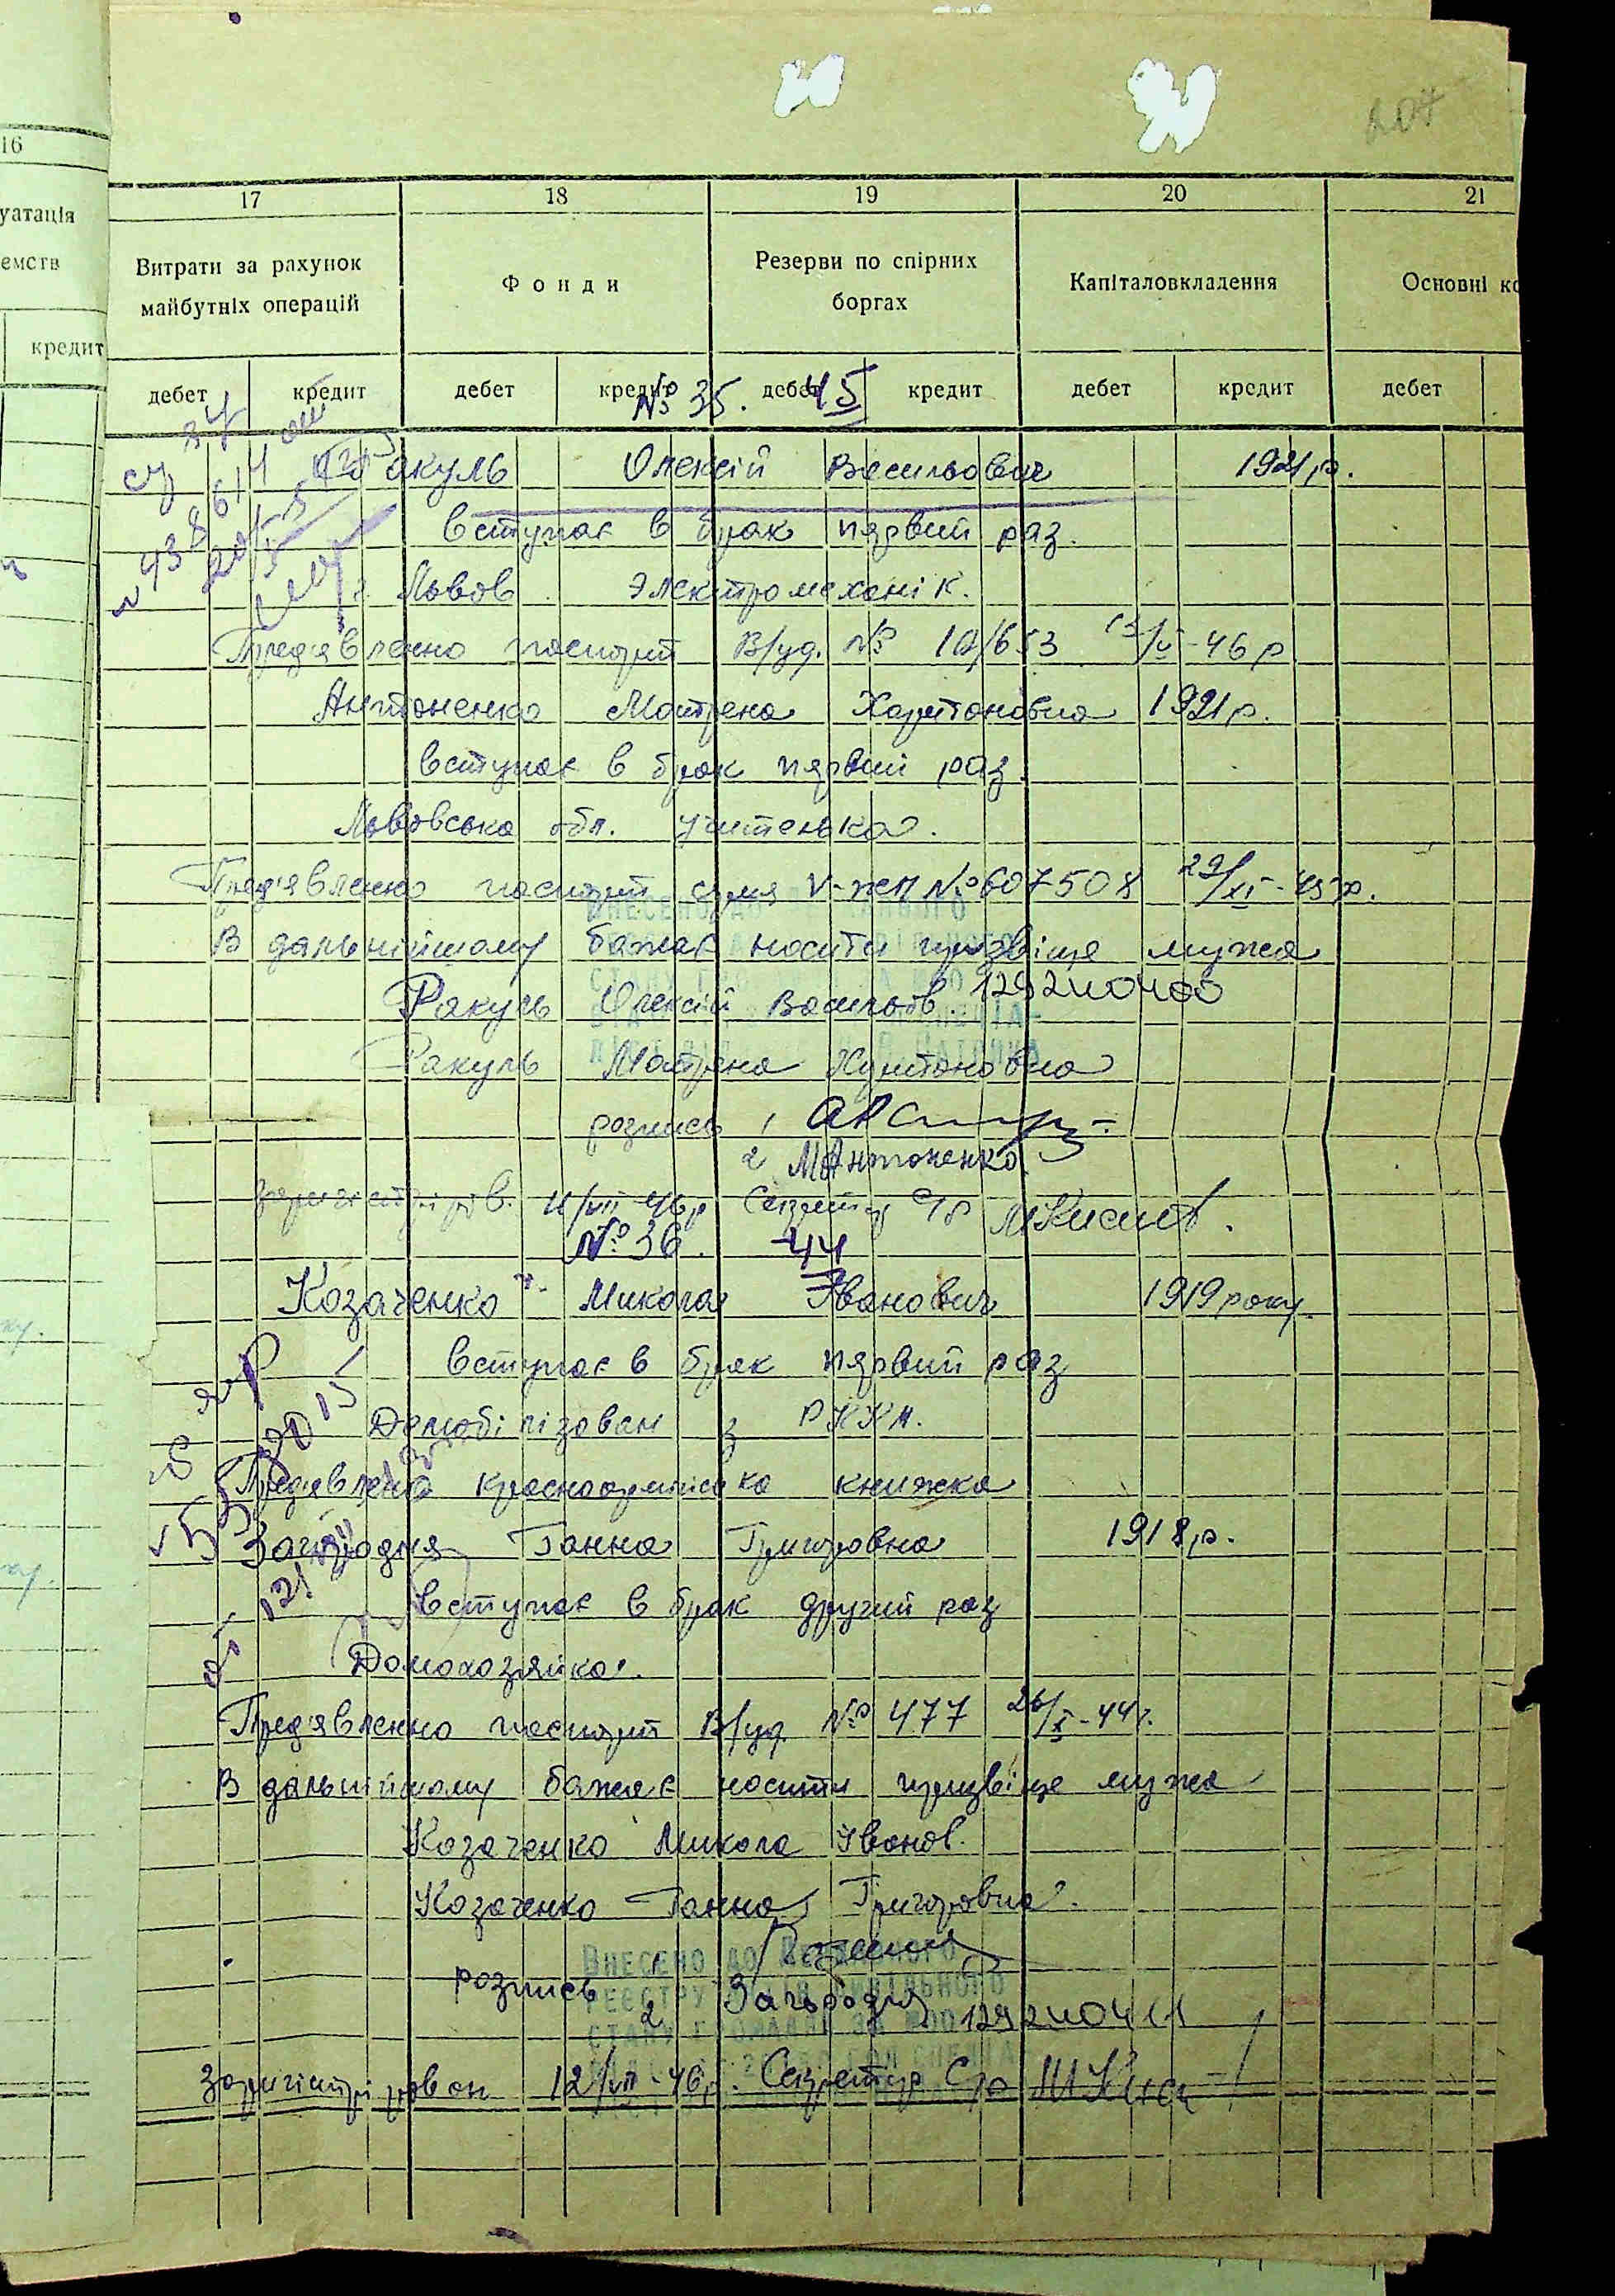 16
уатація
емств
кредит
17 18 19 20 21
Витрати за рахунок майбутніх операцій
Фонди
Резерви по спірних боргах
Капіталовкладення
Основні
дебет кредит дебет кредит дебет кредит дебет кредит дебет
№ 35. 45
Ракуль Олексій Васильович 1921 р.
вступає в брак пярвий раз.
г. Львов. Электромеханік.
Пред'явленно паспорт В/уд. № 10/653 13/V-46 р
Антоненко Мотрена Харитоновна 1921 р.
вступає в брак пярвий раз.
Львовська обл. учителька.
Пред'явленно паспорт серия V-жел № 607508 29/XI-45 р.
В дальнійшому бажає носити прізвіще мужа
Ракуль Олексій Васильов. 1292110400
Ракуль Мотрена Харитоновна
розпись 1
2 МАнтоненко
зарегістрірів. 11/VII 46 р Секретар С/р
№ 36. 44
Козаченко Микола Іванович 1919 року.
вступає в брак пярвий раз
Демобілізован з РККА.
Предявлено красноармійська книжка
Загородня Ганна Григоровна 1918 р.
вступає в брак другий раз
Домохозяйка.
Пред'явленно паспорт В/уд. № 477 26/X-44 г.
В дальнійшому бажає носити призвіще мужа
Козаченко Микола Іванов.
Козаченко Ганна Григоровна.
Внесено до Державного
реєстру цивільного
розпись 1
2 Загородня 1292110411
зарегістрірован 12/VII-46 р. Секретар С/р